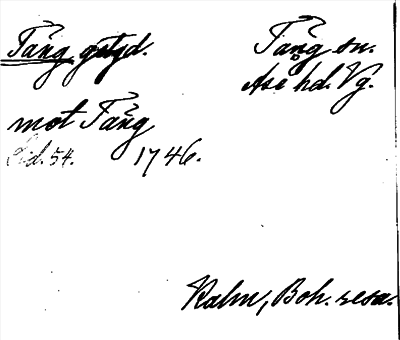 Tång gstgd.
Tång sn.
Ase hd. Vg.
mot Tång
Sid. 54. 1746.
Kalm, Boh. resa.